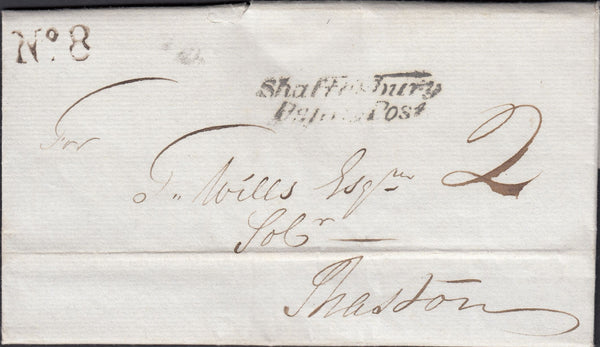 No 8
Shaftesbury
Penny Post
For
T. Wills Esqr 2
Solr
Shaston